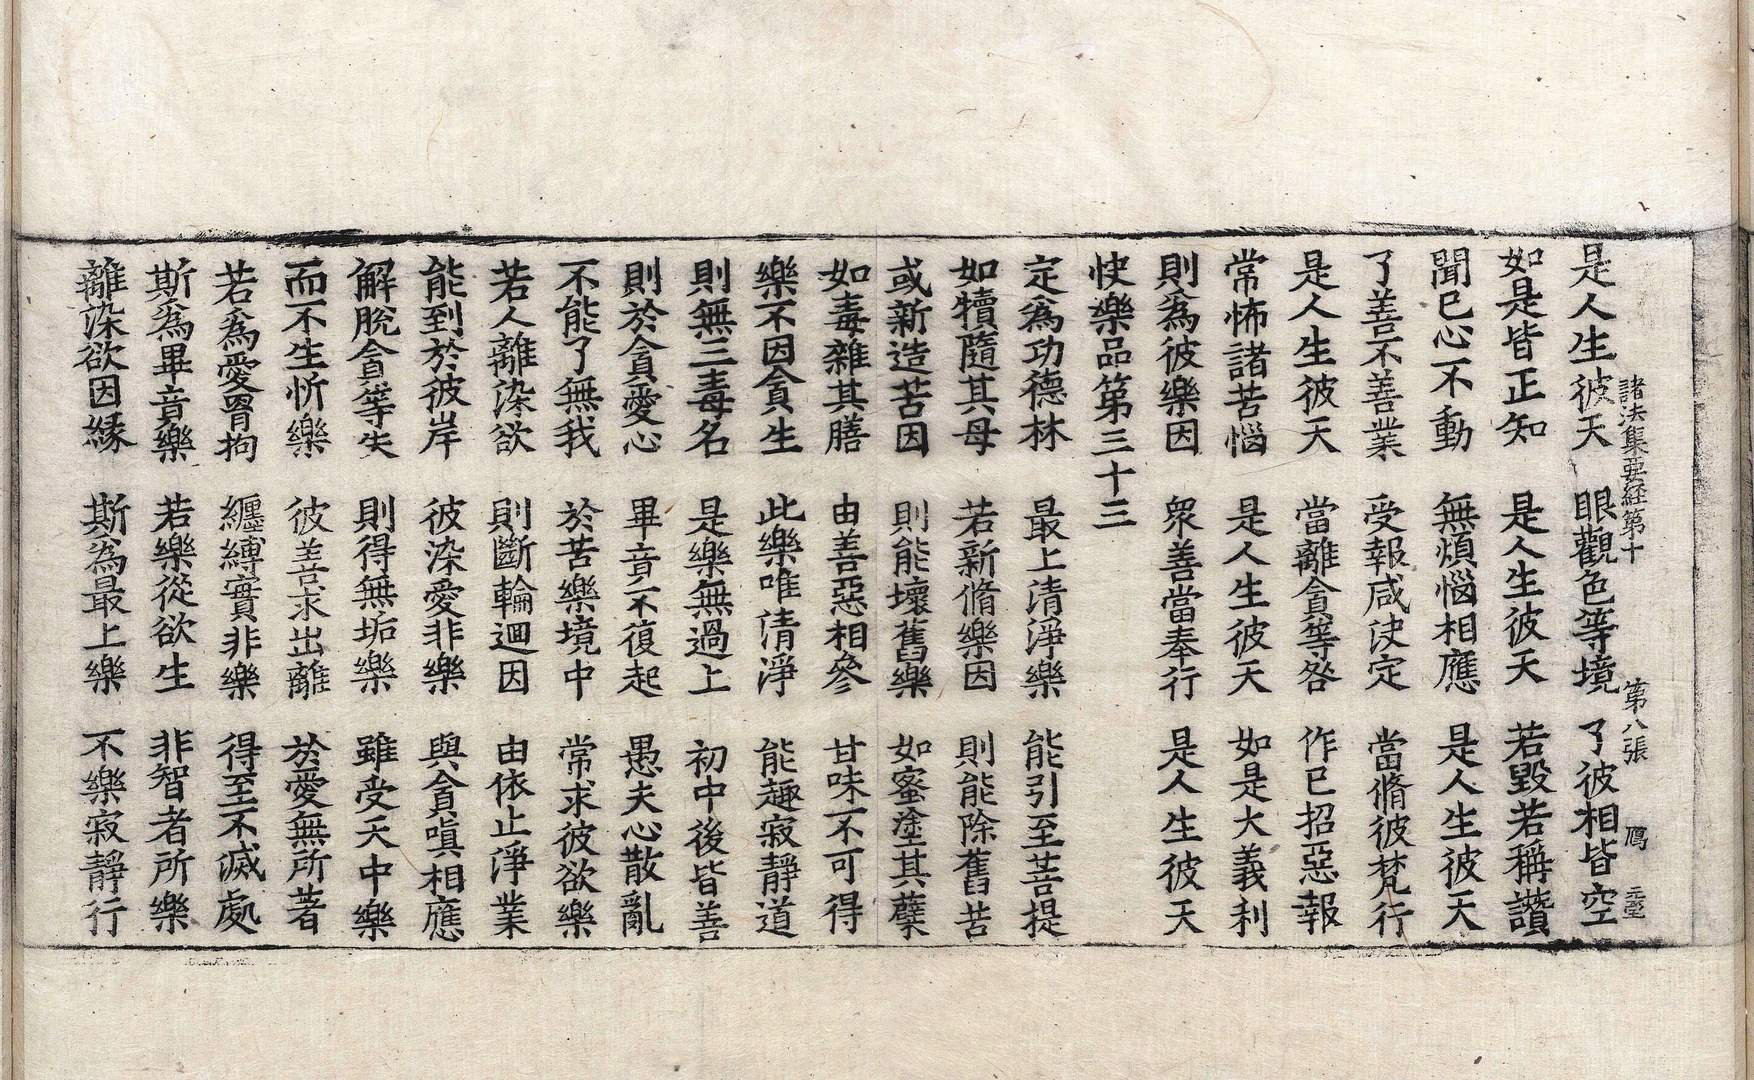 諸法集要経第十　第八張　鴈
是人生彼天　眼觀色等境　了彼相皆空
如是皆正知　是人生彼天　若毀若稱讚
聞已心不動　無煩惱相應　是人生彼天
了善不善業　受報咸決定　當脩彼梵行
是人生彼天　當離貪等咎　作已招惡報
常怖諸苦惱　是人生彼天　如是大義利
則為彼樂因　衆善當奉行　是人生彼天
快樂品第三十三
定為功德林　最上清淨樂　能引至菩提
如犢隨其母　若新脩樂因　則能除舊苦
或新造苦因　則能壞舊樂　如蜜塗其蘖
如毒雜其膳　由善惡相參　甘味不可得
樂不因貪生　此樂唯清淨　能趣寂靜道
則無三毒名　是樂無過上　初中後皆善
則於貪愛心　畢竟不復起　愚夫心散亂
不能了無我　於苦樂境中　常求彼欲樂
若人離染欲　則斷輪迴因　由依止淨業
能到於彼岸　彼染愛非樂　與貪嗔相應
解脫貪等失　則得無垢樂　雖受天中樂
而不生忻樂　彼善求出離　於愛無所著
若為愛罥拘　纏縛實非樂　得至不滅處
斯為畢竟樂　若樂從欲生　非智者所樂
離染欲因縁　斯為最上樂　不樂寂靜行